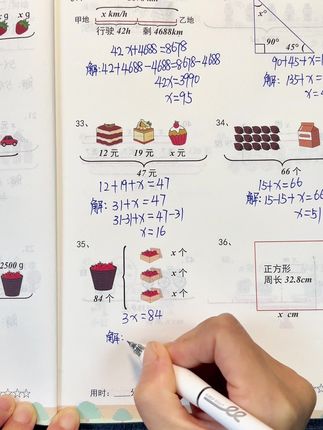 x g
x g
2500 g
x km/h
甲地
乙地
行驶 42h 剩 4688km
42x+4688=8678
解:42+4688-4688=8678-4688
42x=3990
x=95
x°
90°
45°
90+45+
解:135+x
33、
12 元
19 元
x 元
47 元
12+19+x=47
解:31+x=47
31-31+x=47-31
x=16
34、
66 个
15+x=66
解:15-15+x=66
x=51
35、
84 个
x 个
x 个
x 个
3x=84
解:
36、
正方形
周长 32.8cm
x cm
用时: